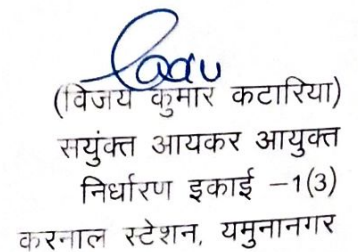 (विजय कुमार कटारिया)
सयुंक्त आयकर आयुक्त
निर्धारण इकाई –1(3)
करनाल स्टेशन, यमुनानगर